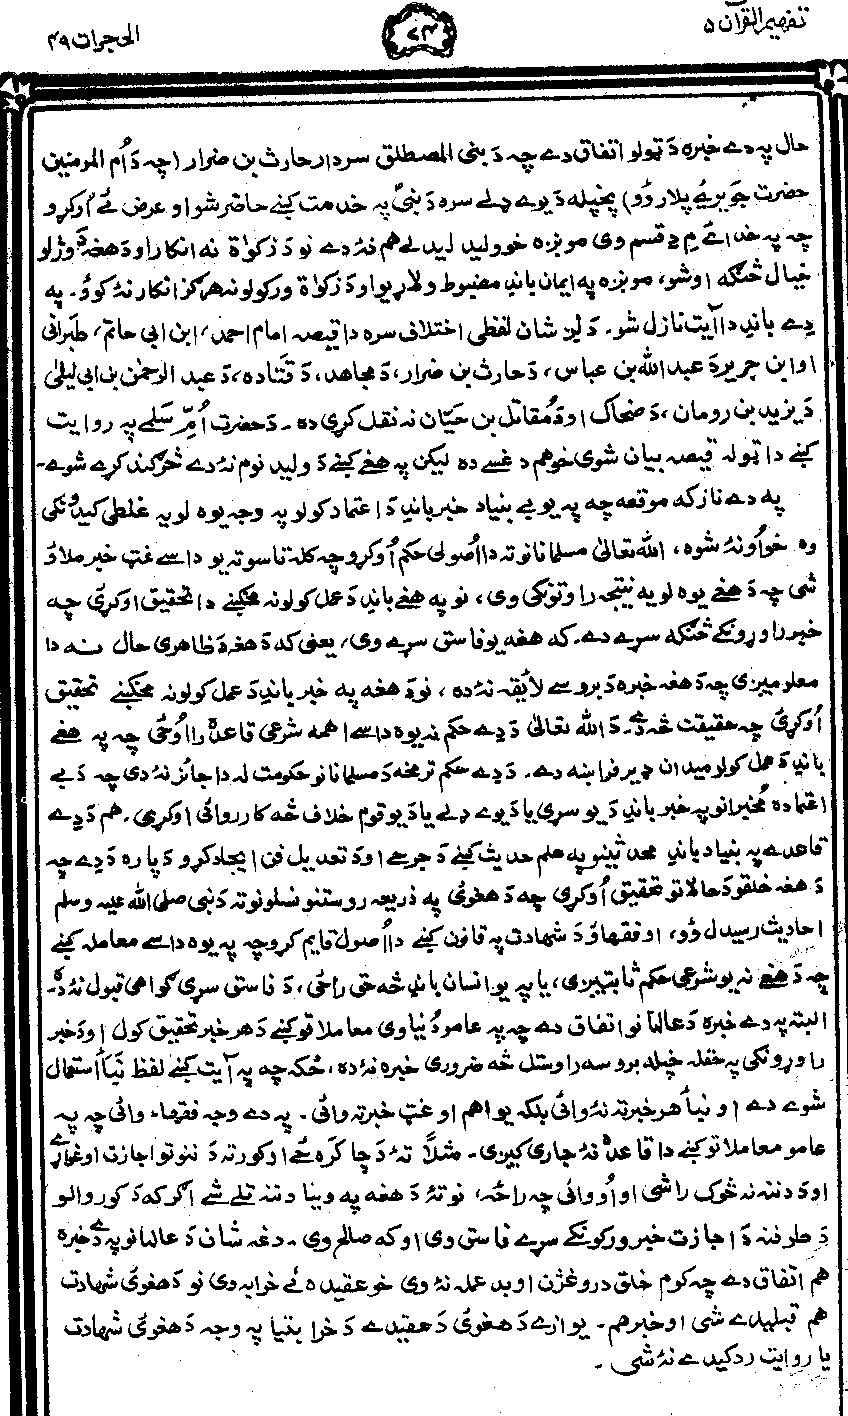 تفهیم القرآن ۵
۷۴
الحجرات ۴۹
حال په دے خبره دَ ټولو اتفاق دے چه دَ بنی المصطلق سردار حارث بن ضرار (چه دَ اُم المومنین
حضرت جویریؓ پلار وُو) پخپله دَ یوے ډلے سره دَ نبیؐ په خدمت کښے حاضر شو او عرض ئے اُوکړو
چه په خدائے مِ دِ قسم وی مونږه خو ولید لیدلے هم نۀ دے نو دَ زکوٰة نه انکار او دَ هغۀ دَ وژلو
خیال څنګه اوشو، مونږه په ایمان باندِ مضبوط ولاړ یو او دَ زکوٰة ورکولو نه هرګز انکار نۀ کوُو۔ په
دِے باندِ دا آیت نازل شو۔ دَ لږ شان لفظی اختلاف سره دا قیصه امام احمد، ابن ابی حاتم، طبرانی
او ابن جریر دَ عبد الله بن عباس، دَ حارث بن ضرار، دَ مجاهد، دَ قتاده، دَ عبد الرحمٰن بن ابی لیلیٰ
دَ یزید بن رومان، دَ ضحاک او دَ مُقاتل بن حیّان نه نقل کړی ده۔ دَ حضرت اُمِّ سلمےؓ په روایت
کښے دا ټوله قیصه بیان شوی خو هم دغسے ده لیکن په هغے کښے دَ ولید نوم نۀ دے څرګند کړے شوے۔
په دے نازکه موقعه چه په یو بے بنیاد خبر باندِ دَ اعتماد کولو په وجه یوه لویه غلطی کیدونکی
وه خو اُونۀ شوه، الله تعالیٰ مسلمانانو ته دا اُصولی حکم اُوکړو چه کله تاسو ته یو داسے غټ خبر ملاؤ
شی چه دَ هغے یوه لویه نتیجه راوتونکی وی، نو په هغے باندِ دَ عمل کولو نه مخکښے دا تحقیق اوکړئ چه
خبر راوړونکے څنګه سړے دے۔ که هغه یو فاسق سړے وی، یعنی که دَ هغۀ دَ ظاهری حال نه دا
معلومیږی چه دَ هغه خبره دَ بروسے لائقه نۀ ده، نو دَ هغه په خبر باندِ دَ عمل کولو نه مخکښے تحقیق
اُوکړئ چه حقیقت څه دے۔ دَ الله تعالیٰ دَ دِے حکم نه یوه داسے اهمه شرعی قاعده رااُوځی چه په هغے
باندِ دَ عمل کولو میدان ډیر فراخه دے۔ دَ دِے حکم ترمخه دَ مسلمانانو حکومت له دا جائز نۀ دی چه دَ بے
اعتماده مُخبرانو په خبر باندِ دَ یو سړی یا دَ یوے ډلے یا دَ یو قوم خلاف څه کارروائی اوکړی۔ هم دَ دِے
قاعدے په بنیاد باندِ محدثینو په علم حدیث کښے دَ جرحے او دَ تعدیل فن ایجاد کړو دَ پاره دَ دِے چه
دَ هغه خلقو دَ حالاتو تحقیق اُوکړی چه دَ هغوئ په ذریعه روستنو نسلونو ته دَ نبی صلی الله علیه وسلم
احادیث رسیدلی وُو، او فقهاؤ دَ شهادت په قانون کښے دا اُصول قایم کړو چه په یوه داسے معامله کښے
چه دَ هغے نه یو شرعی حکم ثابتیږی، یا په یو انسان باندِ څه حق راځی، دَ فاسق سړی ګواهی قبوله نۀ ده۔
البته په دے خبره دَ عالمانو اتفاق دے چه په عامو دُنیاوی معاملاتو کښے دَ هر خبر تحقیق کول او دَ خبر
راوړونکی په حقله خپله بروسه راوستل څه ضروری خبره نۀ ده، ځکه چه په آیت کښے لفظ نَبَأ استعمال
شوے دے او نبأ هر خبر ته نۀ وائی بلکه یو اهم او غټ خبر ته وائی۔ په دے وجه فقهاء وائی چه په
عامو معاملاتو کښے دا قاعده نۀ جاری کیږی۔ مثلاً تۀ دَ چا کره ځے او کور ته دَ ننوتو اجازت اوغواړے
او دَ دننه نه څوک راشی او اُووائی چه راځه، نو تۀ دَ هغه په وینا دننه تلے شے اګر که دَ کور والو
دَ طرفنه دَ اجازت خبر ورکوونکے سړے فاسق وی او که صالح وی۔ دغه شان دَ عالمانو په دے خبره
هم اتفاق دے چه کوم خلق دروغژن او بد عمله نۀ وی خو عقیده ئے خرابه وی نو دَ هغوئ شهادت
هم قبلیدے شی او خبر هم۔ یوازے دَ هغوئ دَ عقیدے دَ خرابتیا په وجه دَ هغوئ شهادت
یا روایت رد کیدے نۀ شی۔